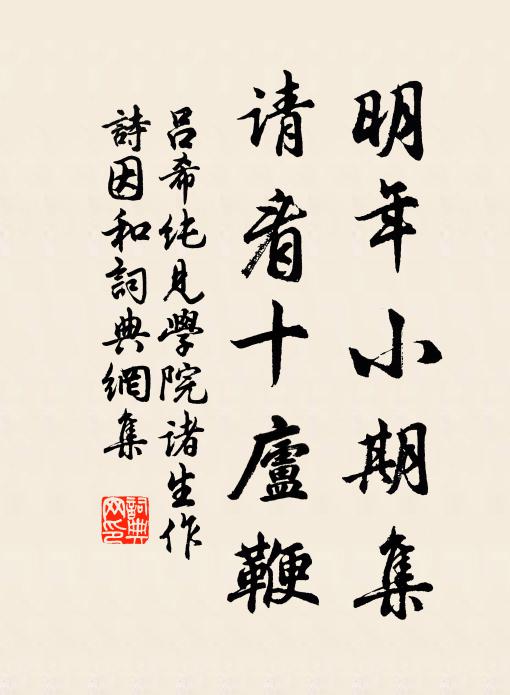 明年小期集
请看十廬鞭
吕希纯見學院诸生作
詩因和詞典網集
詞典網印